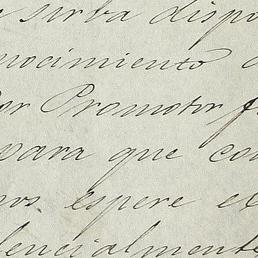 sirba dispo
nocimiento
or Promotor f
para que con
nos espere el
dencialmente